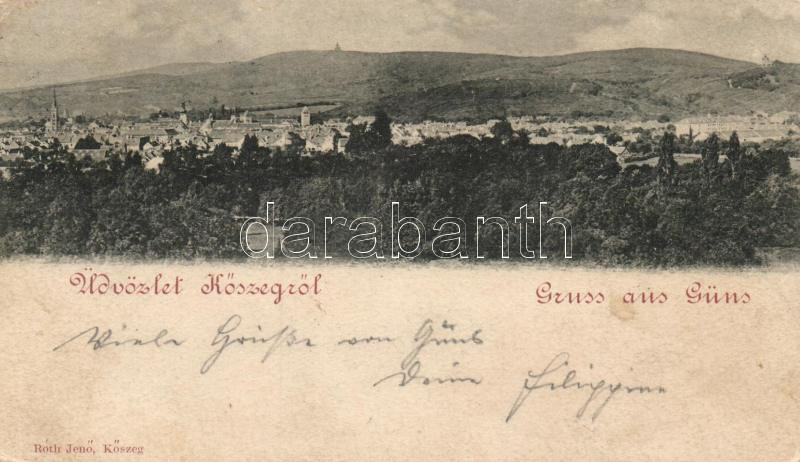 darabanth
Üdvözlet Kőszegről
Gruss aus Güns
Viele Grüße von Güns
Deine Filippine
Róth Jenő, Kőszeg